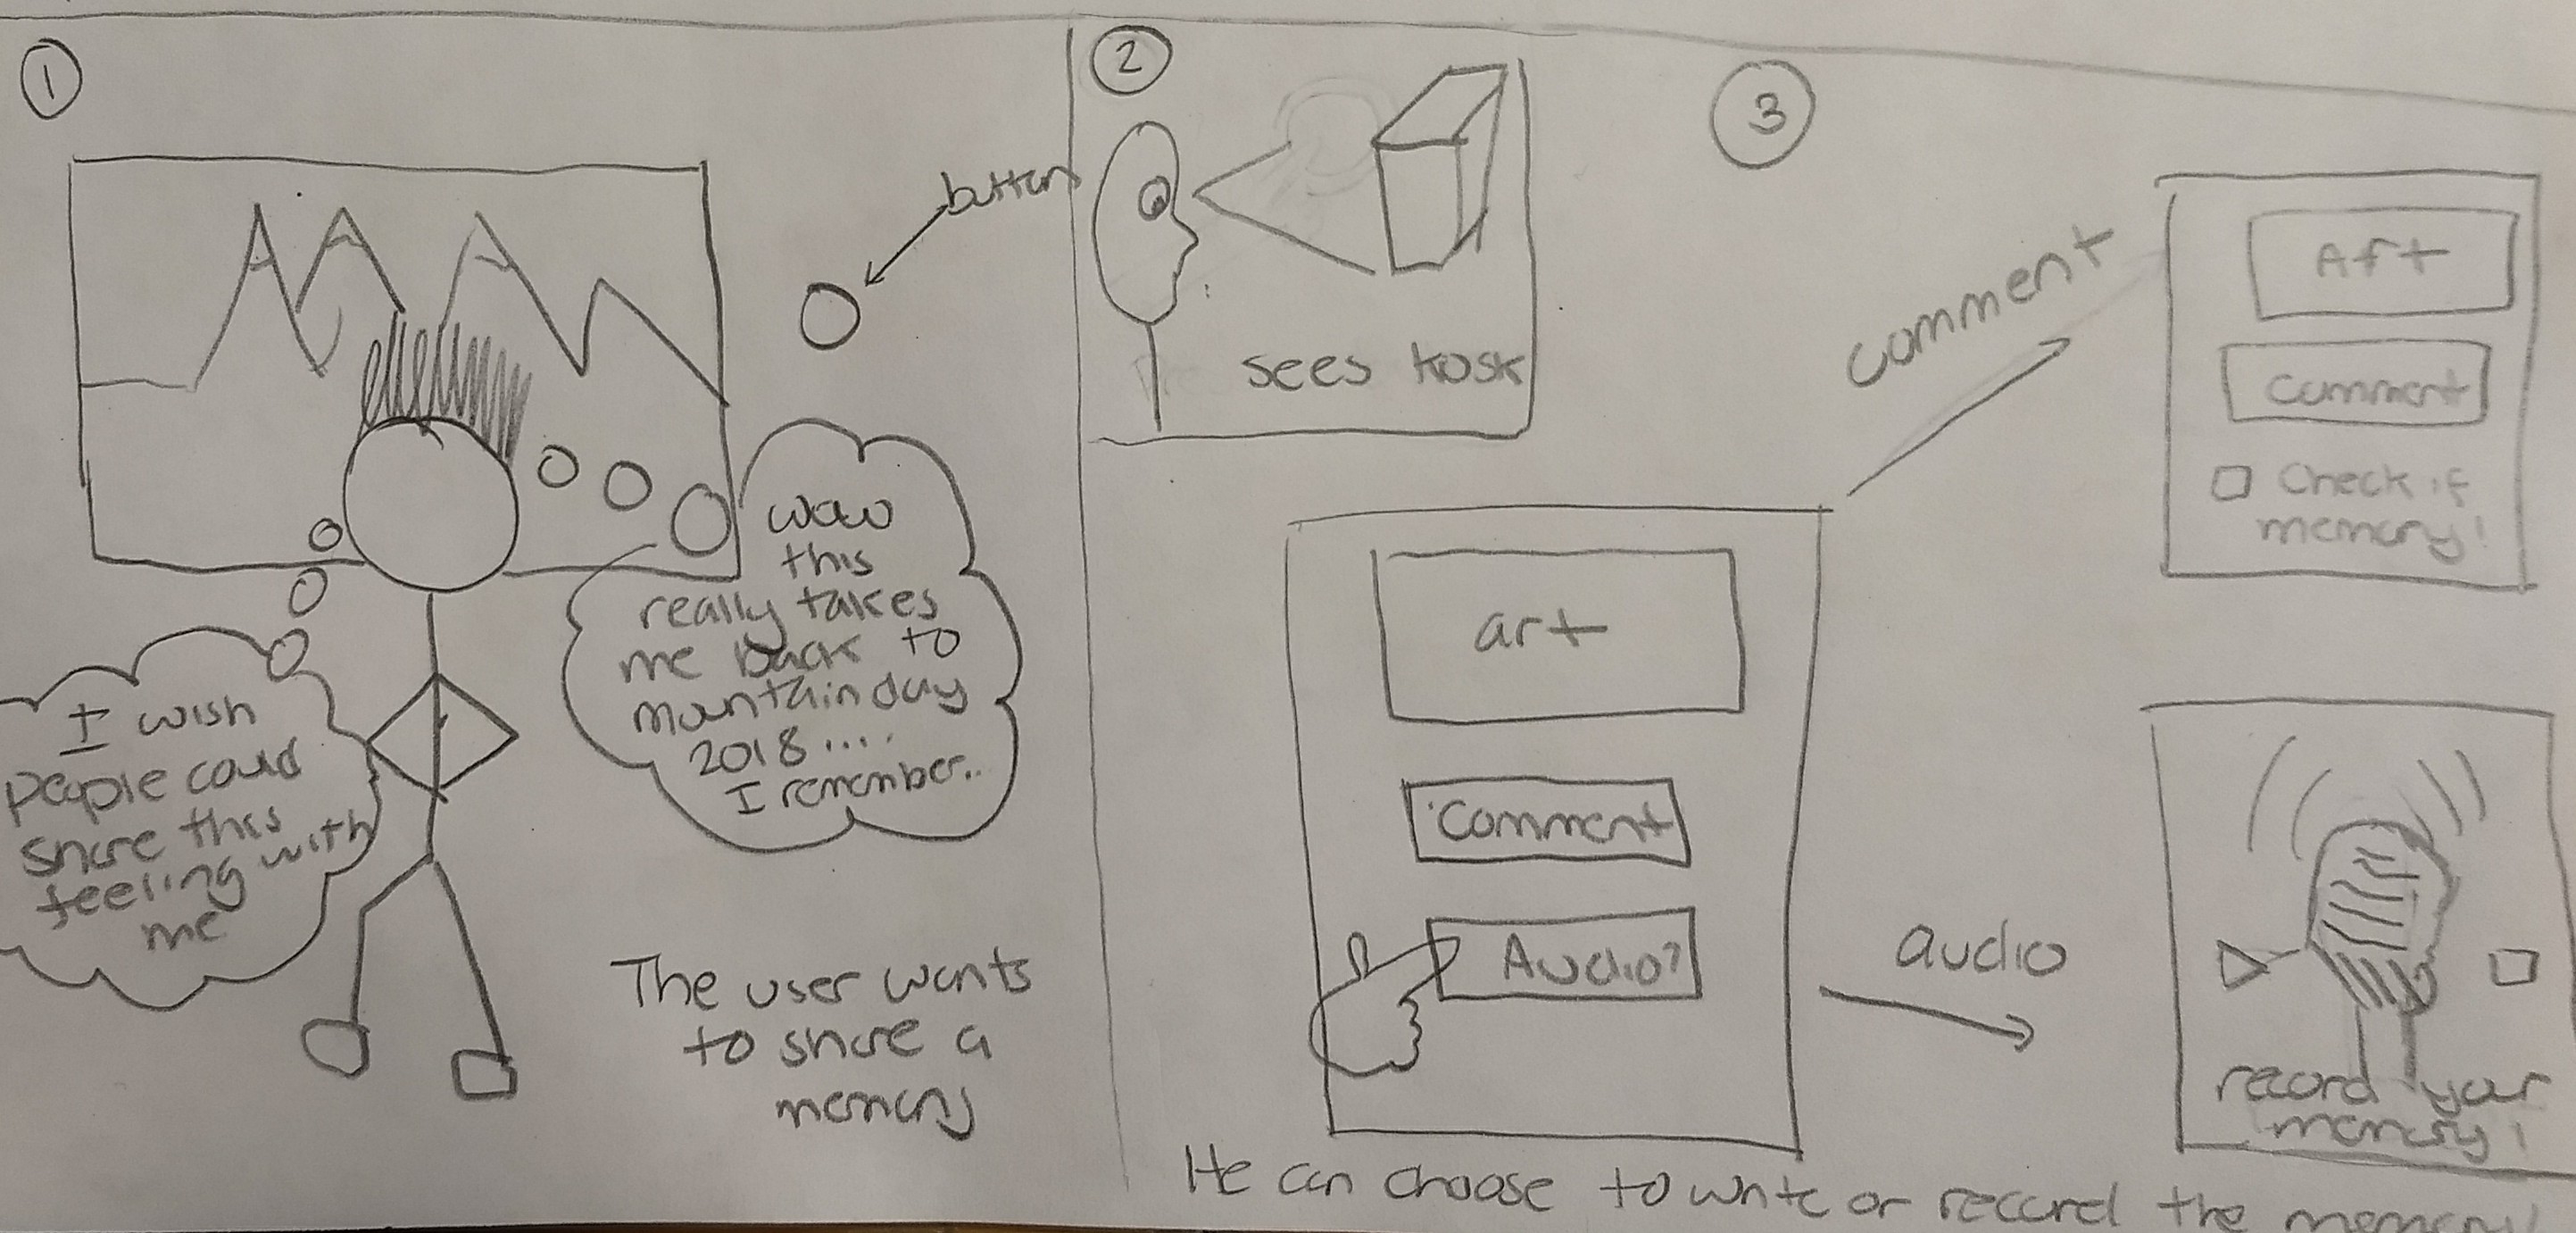 1
button
wow
this
really takes
me back to
mountain day
2018....
I remember..
I wish
people could
share this
feeling with
me
The user wants
to share a
memory
2
sees kosk
3
art
Comment
Audio?
comment
Art
comment
Check if
memory!
audio
record your
memory!
He can choose to write or record the memory!